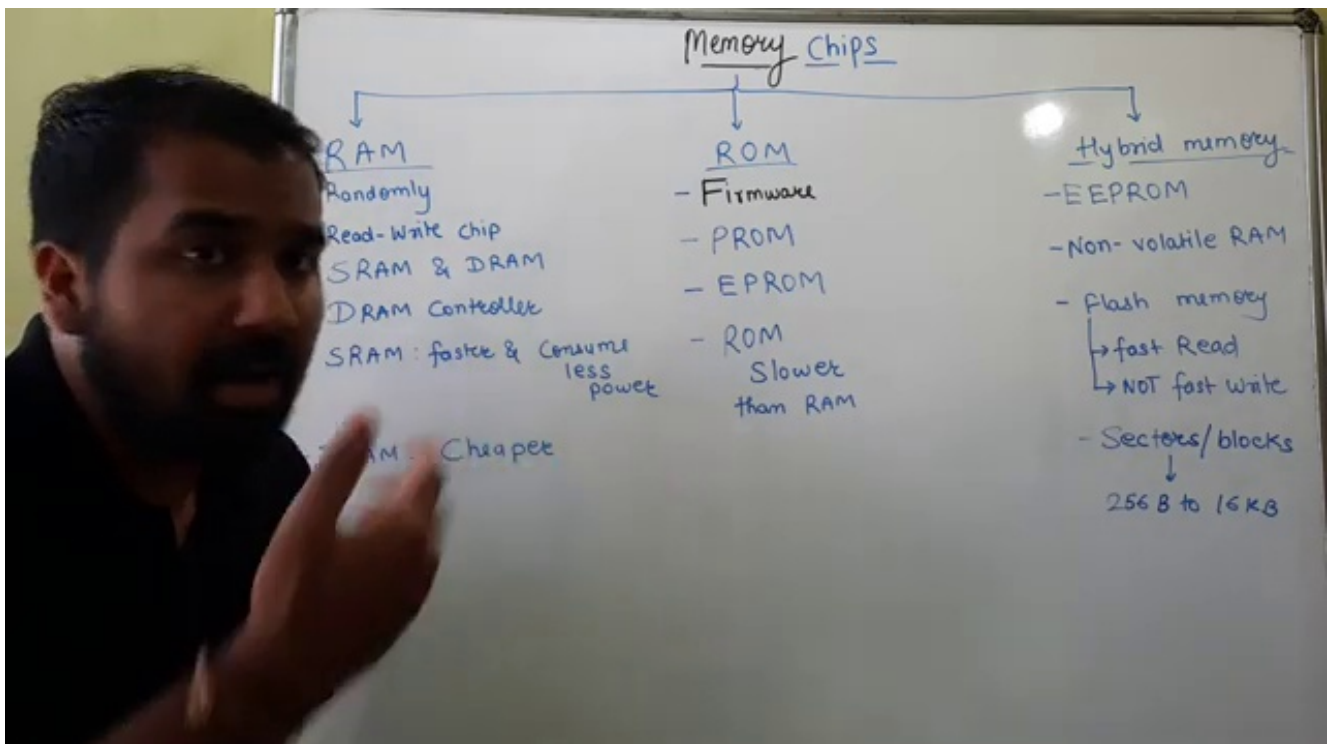 Memory Chips
RAM
Randomly
Read-Write chip
SRAM & DRAM
DRAM Controller
SRAM : faster & Consume
less
power
Cheaper
ROM
- Firmware
- PROM
- EPROM
- ROM
Slower
than RAM
Hybrid memory
- EEPROM
- Non-volatile RAM
- flash memory
→ fast Read
→ NOT fast write
- Sectors/blocks
↓
256 B to 16 KB